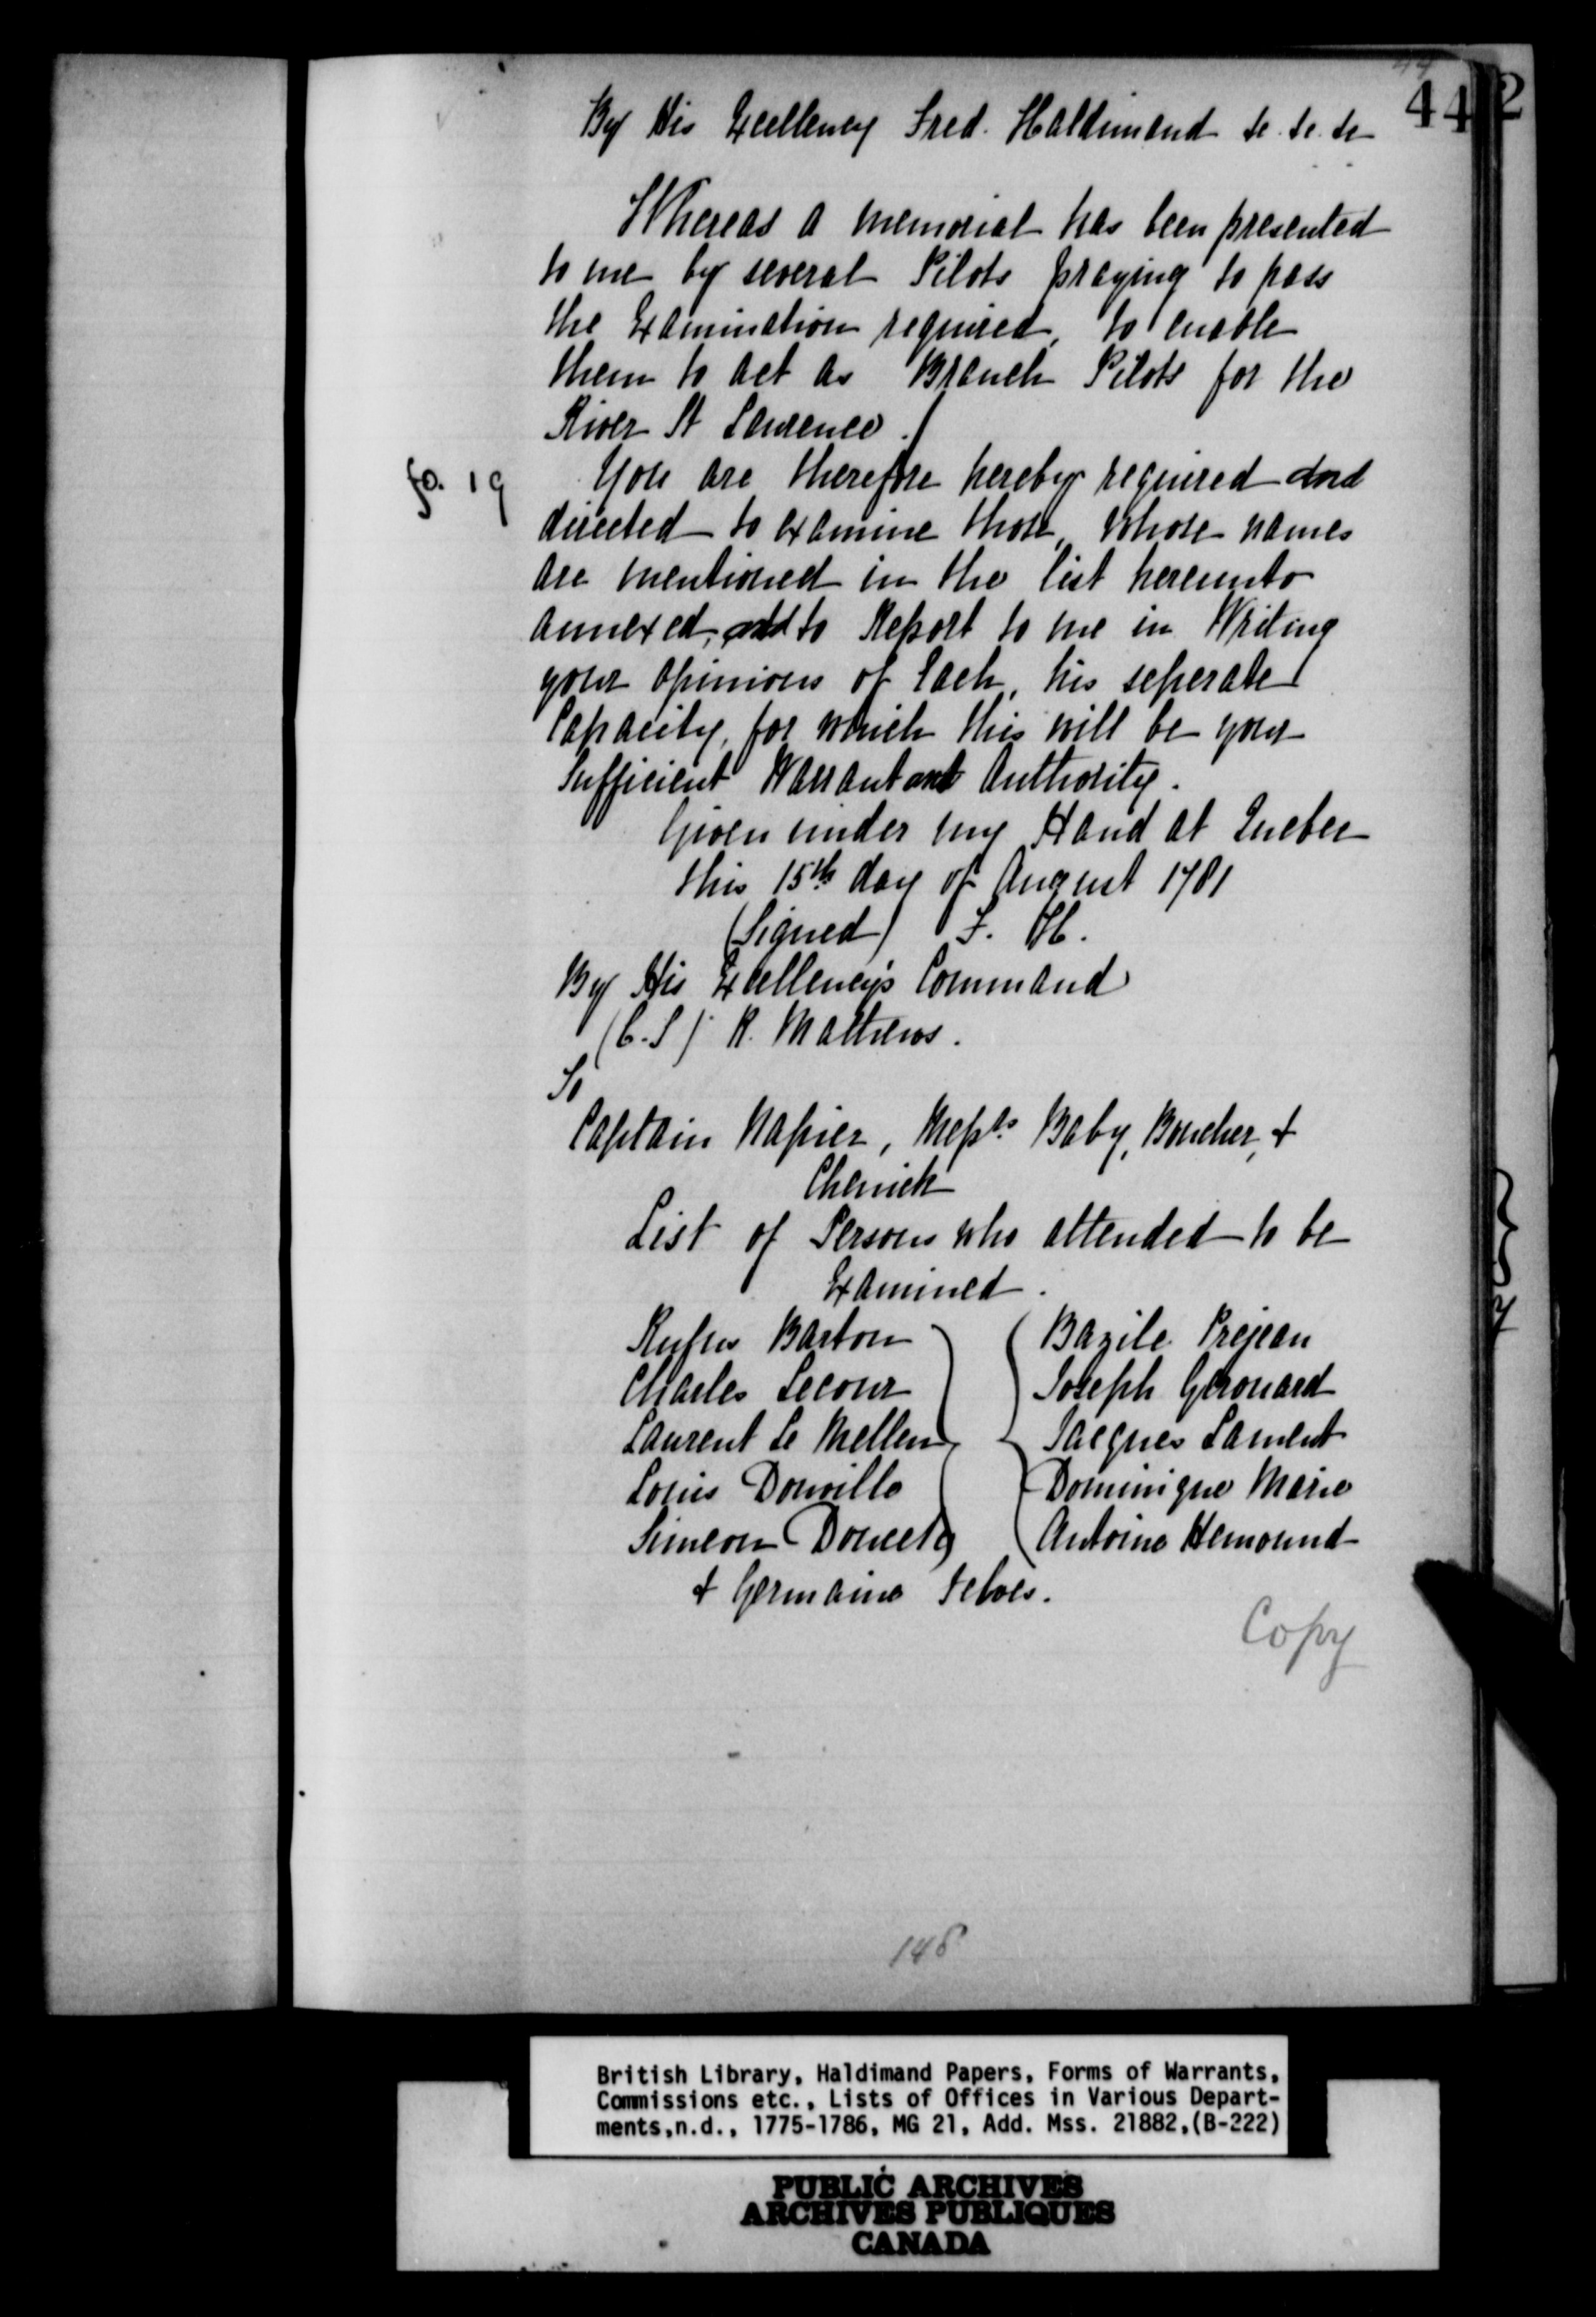 44
By His Excellency Fred. Haldimand &c. &c. &c
Whereas a memorial has been presented
to me by several Pilots praying to pass
the Examination required, to enable
them to act as Branch Pilots for the
River St Laurence.
fo. 19
You are therefore hereby required and
directed to examine those, whose names
are mentioned in the list hereunto
annexed, and to Report to me in Writing
your opinions of Each, his seperate
Capacity, for which this will be your
sufficient Warrant and Authority.
Given under my Hand at Quebec
this 15th day of August 1781
(Signed) F. H.
By His Excellency's Command
R. Mathews.
To
Captain Napier, Messrs Baby, Boucher, &
List of Persons who attended to be
Examined.
Rufus Barton
Charles Lecour
Laurent Le Mellen
Louis Donville
Simeon Doucet
Bazile Prejean
Joseph Gerouard
Jacques Lament
Dominique Marie
Antoine Hemound
& Germaine
Copy
148
British Library, Haldimand Papers, Forms of Warrants,
Commissions etc., Lists of Offices in Various Depart-
ments,n.d., 1775-1786, MG 21, Add. Mss. 21882,(B-222)
PUBLIC ARCHIVES
ARCHIVES PUBLIQUES
CANADA